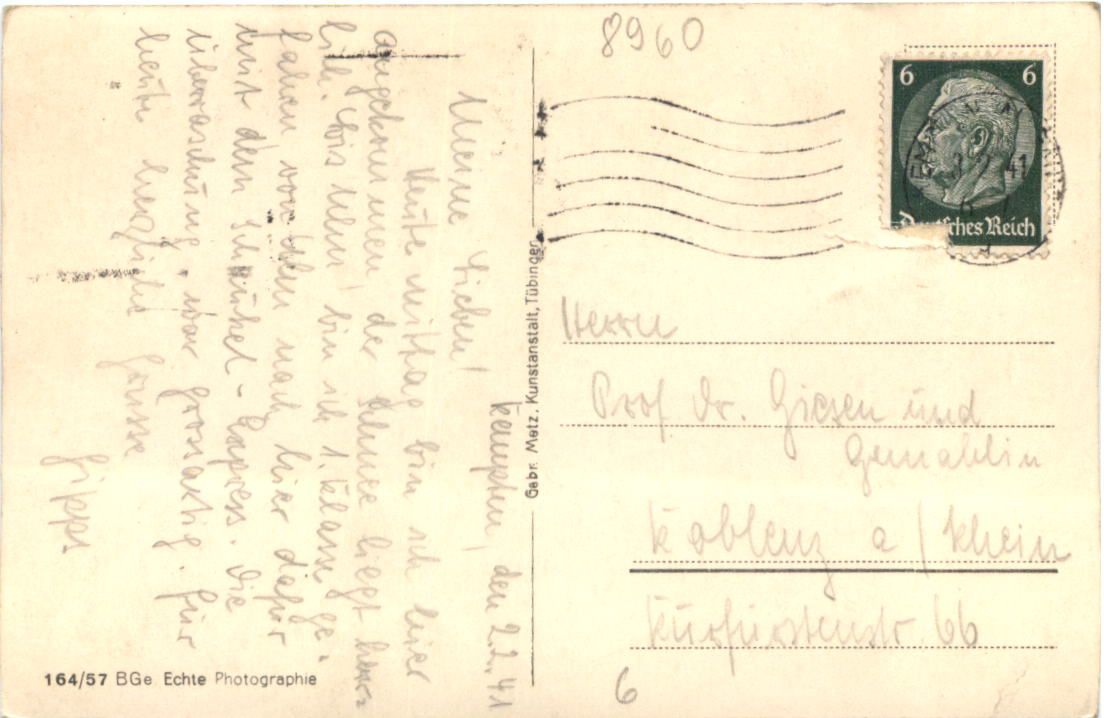 8960
6 6
3.2.41
Deutsches Reich
Kempten, den 2.2.41
Meine Lieben!
Heute mittag bin ich hier
angekommen der Schnee liegt
lich. bis Ulm bin ich 1. Klasse ge-
fahren von Ulm nach hier dafür
mit dem Schaukel-Express. Die
überraschung war grossartig. Für
heute herzliche Grüsse
Gebr. Metz, Kunstanstalt, Tübingen
Herrn
Prof Dr. Giesen und
Gemahlin
Koblenz a/Rhein
Kurfürstenstr. 66
6
164/57 BGe Echte Photographie